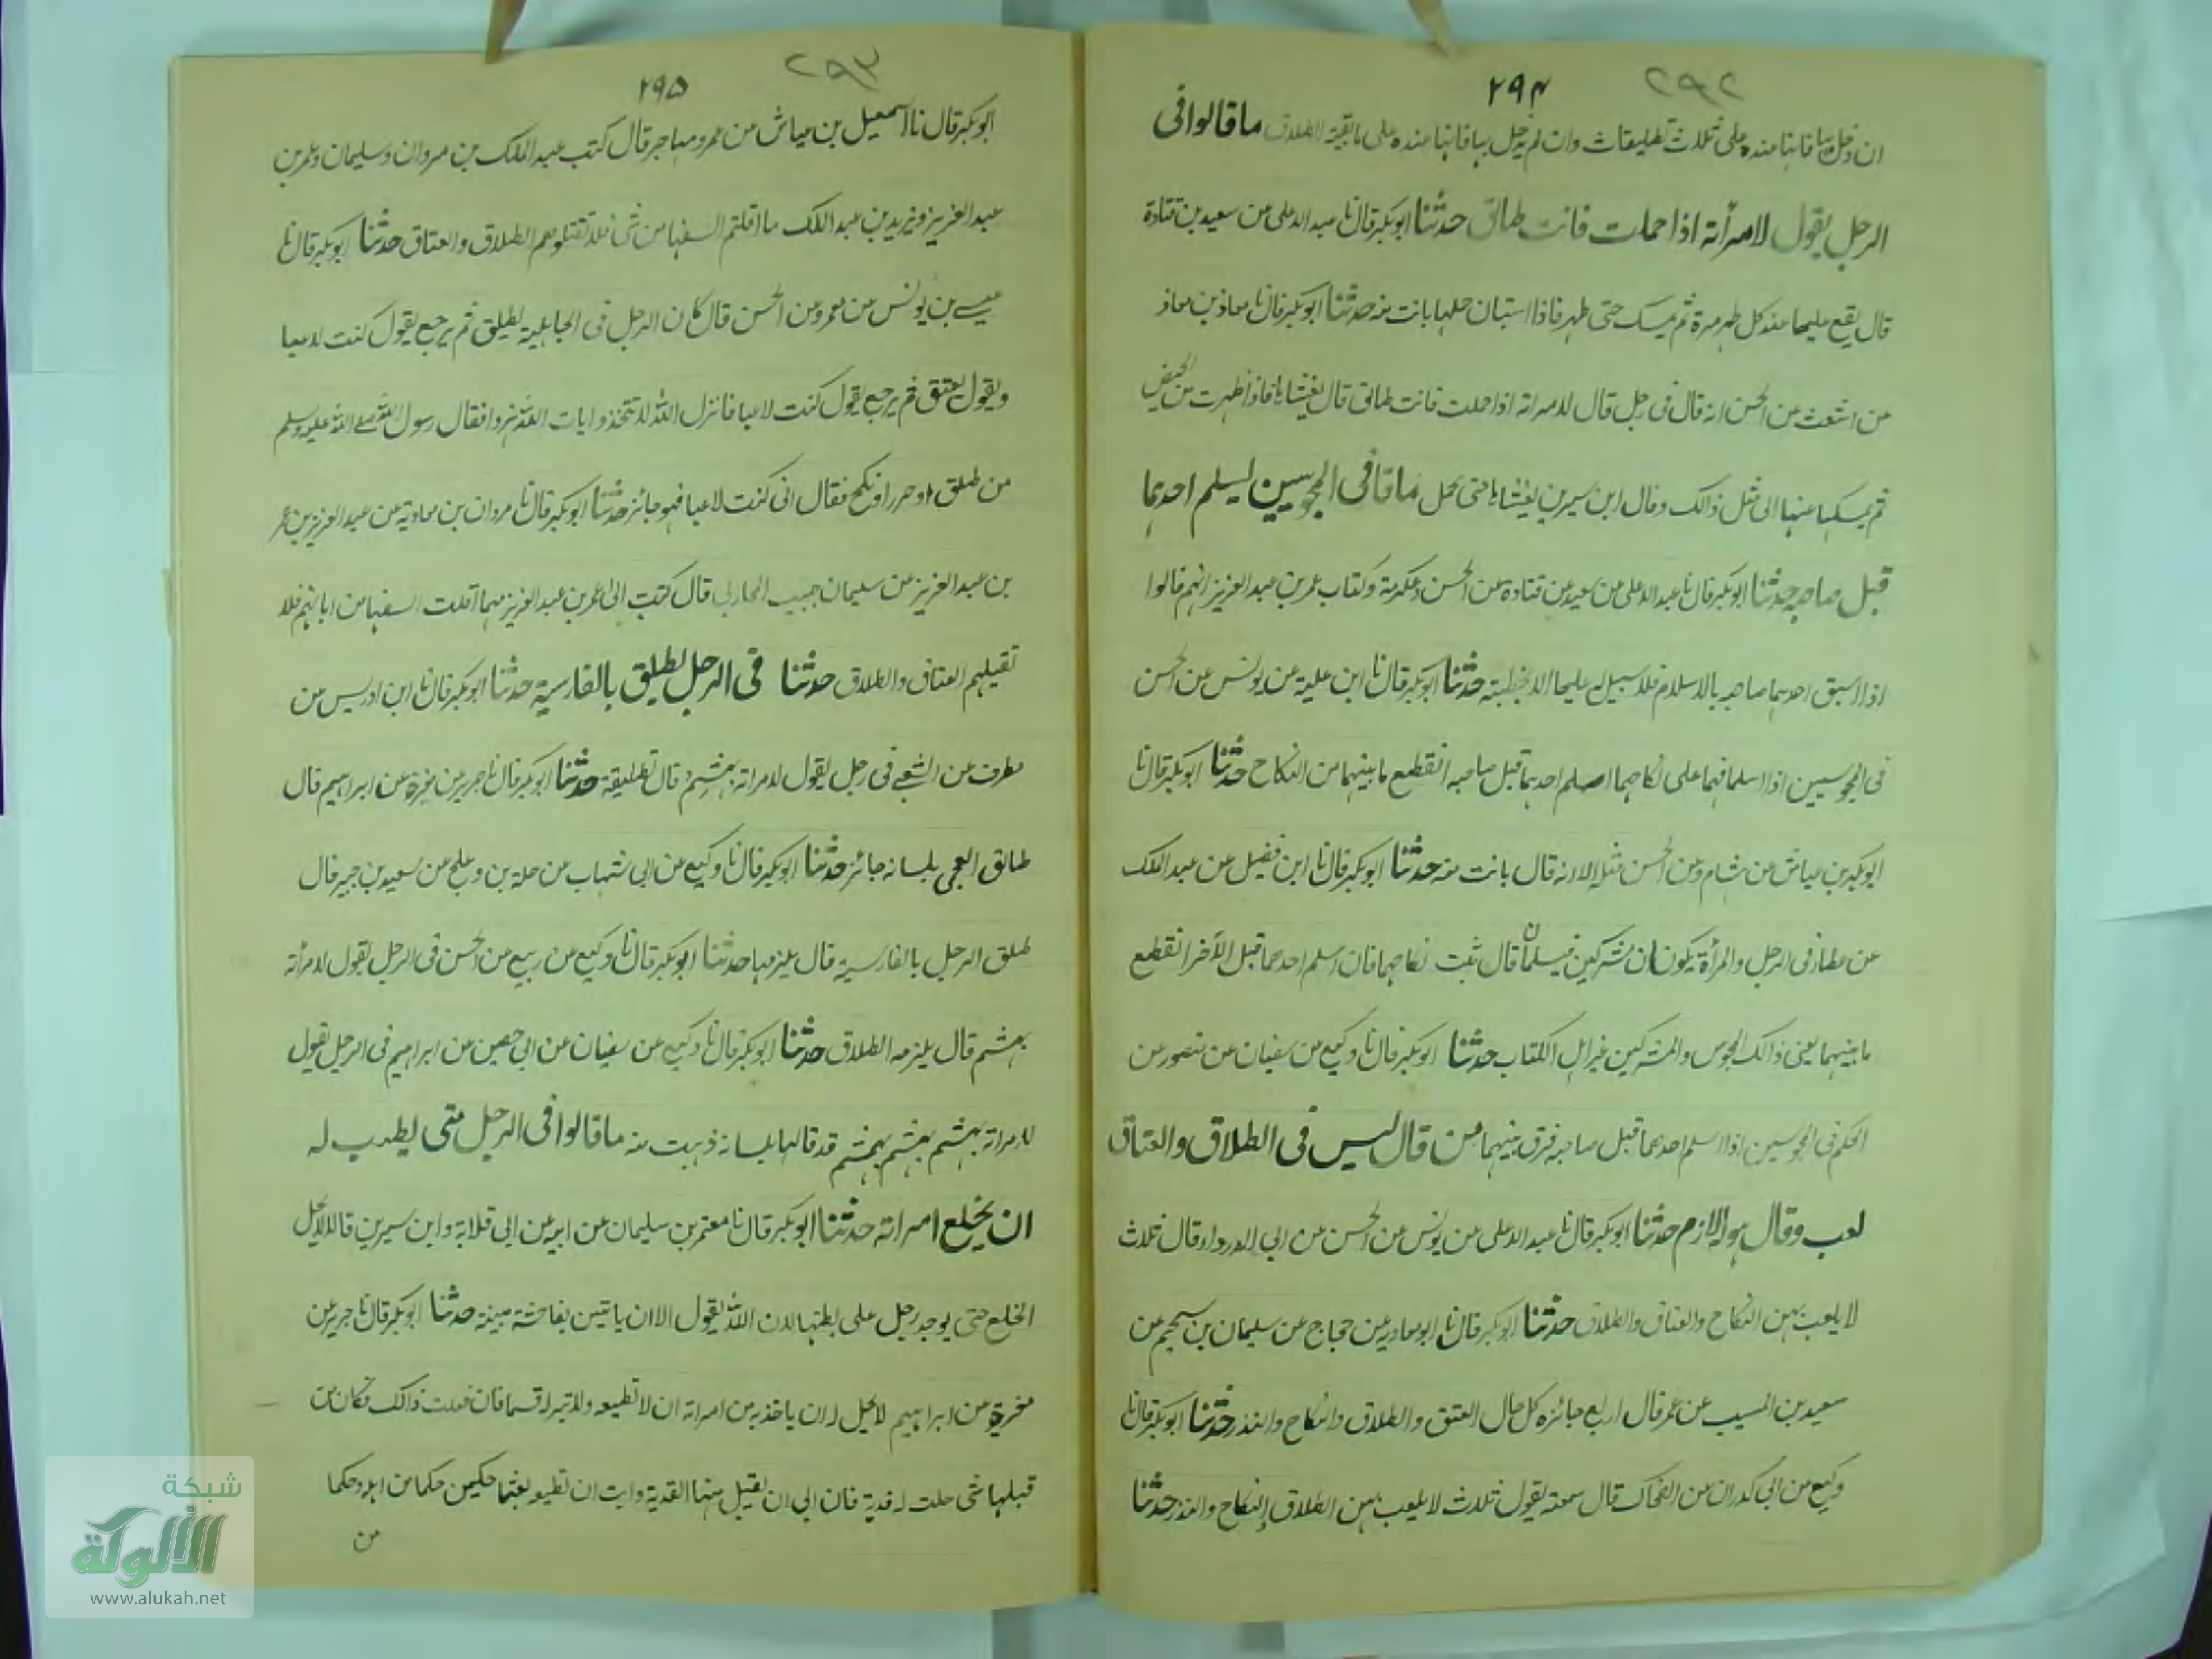 ٢٩٢
٢٩٤
ان دخل بها فانها عنده على ثلاث تطليقات وان لم يدخل بها فانها عنده على ما بقية الطلاق ما قالوا فى
الرجل يقول لامرأته اذا حملت فانت طالق حدثنا ابو بكر قال نا عبد الاعلى عن سعيد بن قتادة
قال يقع عليها عند كل طهر مرة ثم يمسك حتى طهر فاذا استبان حملها بانت منه حدثنا ابو بكر قال نا معاذ بن معاذ
عن اشعث عن الحسن انه قال فى رجل قال لامراته اذا حملت فانت طالق قال يغشاها فاذا طهرت من الحيض
ثم يمسك عنها الى مثل ذالك وقال ابن سيرين يغشاها حتى تحمل ما قا فى المجوسيين ليسلم احدهما
قبل صاحبه حدثنا ابو بكر قال نا عبد الاعلى عن سعيد عن قتادة عن الحسن وعكرمة وكتاب عمر بن عبد العزيز انهم قالوا
اذا سبق احدهما صاحبه بالاسلام فلا سبيل له عليها الا بخطبته حدثنا ابو بكر قال نا ابن علية عن يونس عن الحسن
فى المجوسيين اذا اسلما فهما على نكاحهما اسلم احدهما قبل صاحبه انقطع ما بينهما من النكاح حدثنا ابو بكر قال نا
ابو بكر بن عياش عن هشام عن الحسن مثله الا انه قال بانت منه حدثنا ابو بكر قال نا ابن فضيل عن عبد الملك
عن عطاء فى الرجل والمرأة يكونان مشركين فيسلمان قال ثبت نكاحهما فان اسلم احدهما قبل الآخر انقطع
ما بينهما يعنى ذالك المجوس والمشركين غير اهل الكتاب حدثنا ابو بكر قال نا وكيع عن سفيان عن منصور عن
الحكم فى المجوسين اذا اسلم احدهما قبل صاحبه فرق بينهما من قال ليس فى الطلاق والعتاق
لعب وقال هو له لازم حدثنا ابو بكر قال نا عبد الاعلى عن يونس عن الحسن عن ابى الدرداء قال ثلاث
لا يلعب بهن النكاح والعتاق والطلاق حدثنا ابو بكر قال نا ابو معاوية عن حجاج عن سليمان بن سحيم عن
سعيد بن المسيب عن عمر قال اربع جائزه كل حال العتق والطلاق والنكاح والنذر حدثنا ابو بكر قال نا
وكيع عن ابى كدران عن الضحاك قال سمعته يقول ثلاث لا يلعب بهن الطلاق النكاح والنذر حدثنا
٢٩٣
٢٩٥
ابو بكر قال نا اسمعيل بن عياش عن عمرو مهاجر قال كتب عبد الملك بن مروان وسليمان وعمر بن
عبد العزيز ويزيد بن عبد الملك ما اقلتم السفها من شى فلا تقتلوهم الطلاق والعتاق حدثنا ابو بكر قال نا
عيسے بن يونس عن عمرو عن الحسن قال كان الرجل فى الجاهلية يطلق ثم يرجع يقول كنت لاعبا
ويقول يعتق ثم يرجع يقول كنت لاعبا فانزل الله لا تتخذوا ايات الله هزوا فقال رسول الله صلے الله عليه وسلم
من طلق او حرر او نكح فقال انى كنت لاعبا فهو جائز حدثنا ابو بكر قال نا مروان بن معاوية عن عبد العزيز بن عمر
بن عبد العزيز عن سليمان حبيب المحاربى قال كتب الى عمر بن عبد العزيز مهما اقلت السفها من ايمانهم فلا
تقيلهم العتاق والطلاق حدثنا فى الرجل يطلق بالفارسية حدثنا ابو بكر قال نا ابن ادريس عن
مطرف عن الشعبے فى رجل يقول لامراته بهشتم قال تطليقة حدثنا ابو بكر قال نا جرير عن مغيرة عن ابراهيم قال
طالق العجمى بلسانه جائز حدثنا ابو بكر قال نا وكيع عن ابى شهاب عن حلة بن وعلج عن سعيد بن جبير قال
طلق الرجل بالفارسية قال يلزمها حدثنا ابو بكر قال نا وكيع عن ربيع عن الحسن فى الرجل يقول لامرأته
بهشتم قال يلزمه الطلاق حدثنا ابو بكر قال نا وكيع عن سفيان عن ابى حصين عن ابراهيم فى الرجل يقول
لامراته بهشتم بهشتم بهشتم قد قالها بلسانه ذهبت منه ما قالوا فى الرجل متى يطيب له
ان يخلع امراته حدثنا ابو بكر قال نا معتمر بن سليمان عن ابيه عن ابى قلابة وابن سيرين قالا لا يحل
الخلع حتى يوجد رجل على بطنها لان الله يقول الا ان ياتين بفاحشة مبينة حدثنا ابو بكر قال نا جرير عن
مغيرة عن ابراهيم لا يحل له ان ياخذ به من امراته ان لا تطيعه ولا تبر له قسما فان فعلت ذالك فكان من
قبلها شى حلت له فدية فان ابى ان يقبل منها الفدية وابت ان تطيعه بعثا حكمين حكما من اهله وحكما
من
شبكة
الألوكة
www.alukah.net